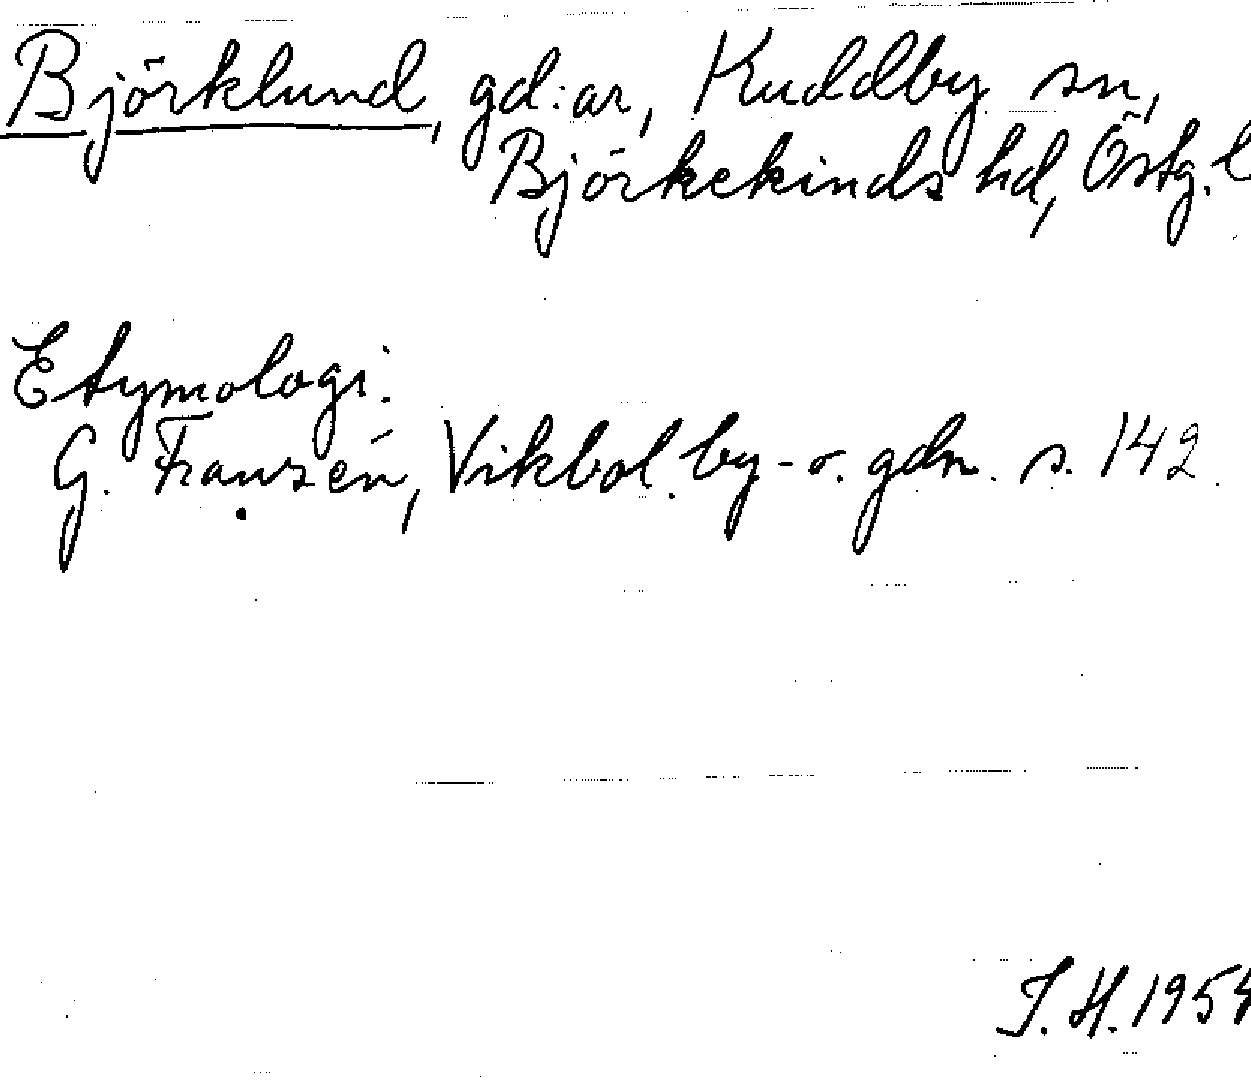 Björklund, gd:ar, Kuddby sn,
Björkekinds hd, Östg. l
Etymologi:
G. Franzén, Vikbol. by- o. gdn. s. 142.
I. H. 1954